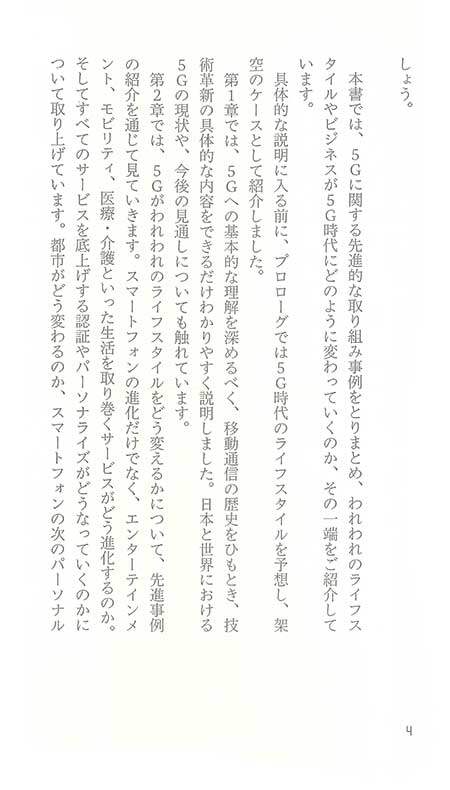 しょう。
　本書では、5Gに関する先進的な取り組み事例をとりまとめ、われわれのライフス
タイルやビジネスが5G時代にどのように変わっていくのか、その一端をご紹介して
います。
　具体的な説明に入る前に、プロローグでは5G時代のライフスタイルを予想し、架
空のケースとして紹介しました。
　第1章では、5Gへの基本的な理解を深めるべく、移動通信の歴史をひもとき、技
術革新の具体的な内容をできるだけわかりやすく説明しました。日本と世界における
5Gの現状や、今後の見通しについても触れています。
　第2章では、5Gがわれわれのライフスタイルをどう変えるかについて、先進事例
の紹介を通じて見ていきます。スマートフォンの進化だけでなく、エンターテインメ
ント、モビリティ、医療・介護といった生活を取り巻くサービスがどう進化するのか。
そしてすべてのサービスを底上げする認証やパーソナライズがどうなっていくのかに
ついて取り上げています。都市がどう変わるのか、スマートフォンの次のパーソナル
4